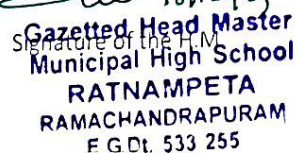 Signature of the H.M
Gazetted Head Master
Municipal High School
RATNAMPETA
RAMACHANDRAPURAM
E.G.Dt, 533 255